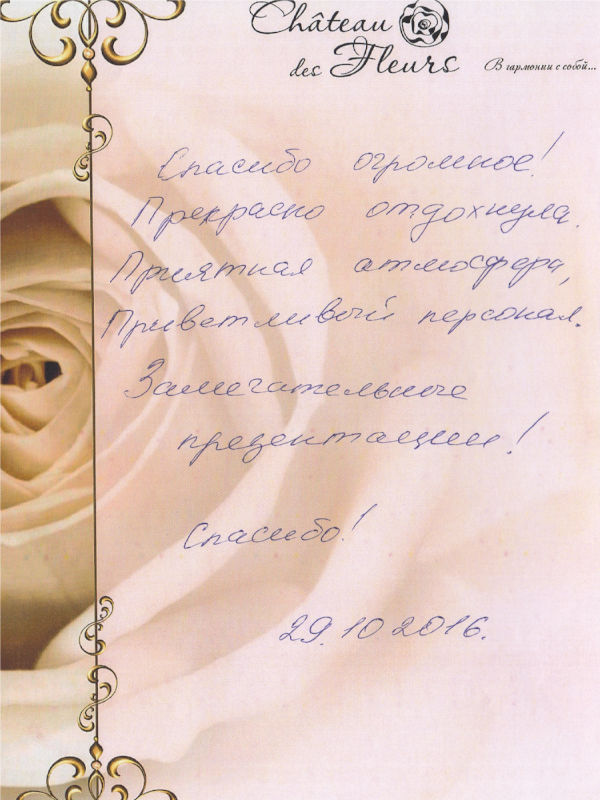 Château
des Fleurs
В гармонии с собой...
Спасибо огромное!
Прекрасно отдохнула.
Приятная атмосфера,
Приветливый персонал.
Замечательные
презентации!
Спасибо!
29.10 2016.